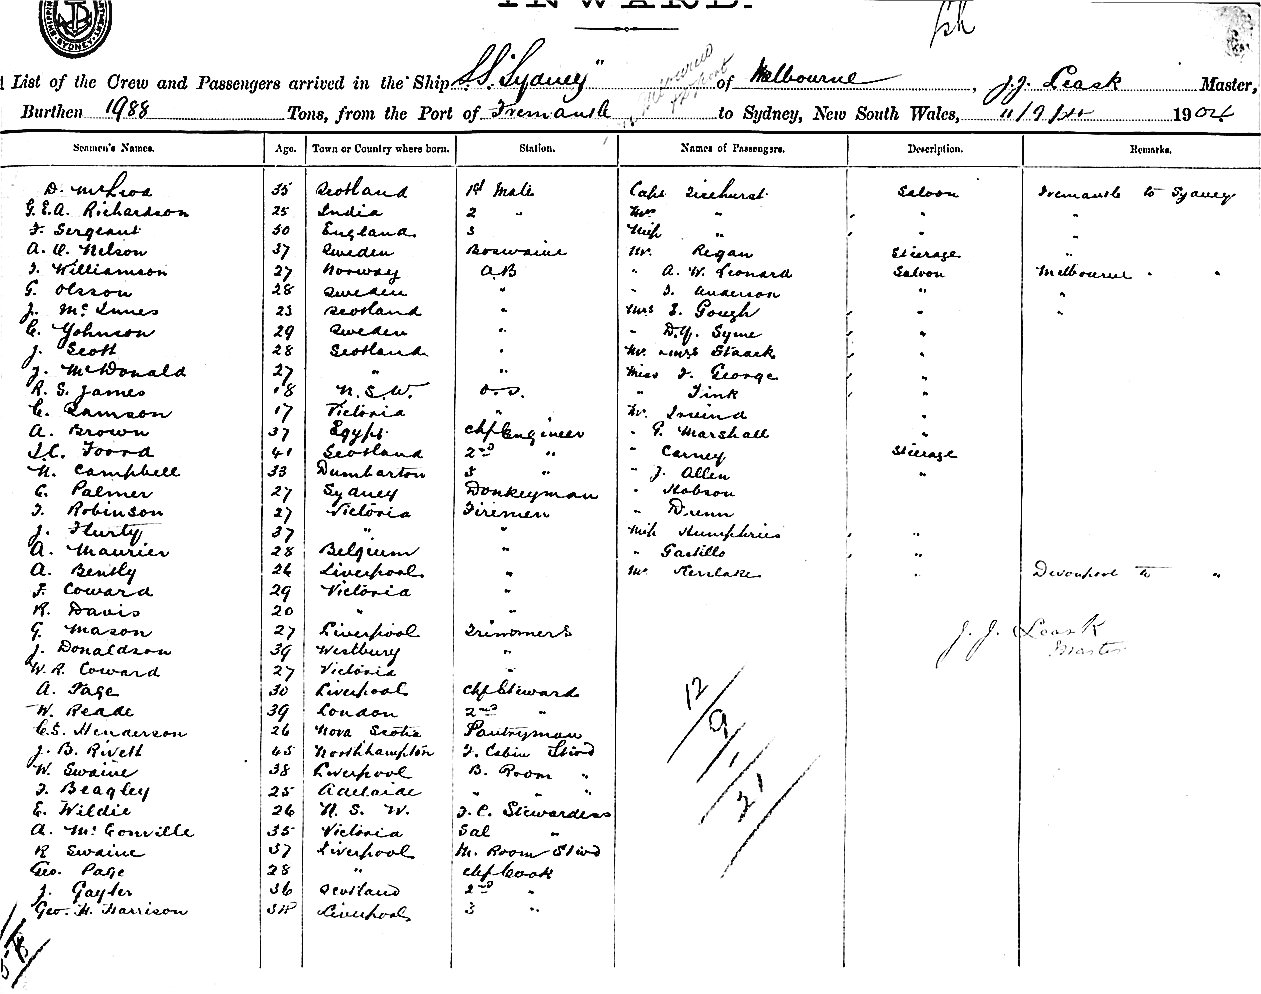 INWARD.
List of the Crew and Passengers arrived in the Ship S.S. "Sydney" of Melbourne, J.J. Leask Master,
Burthen 1988 Tons, from the Port of Fremantle to Sydney, New South Wales, 11/9/ 1904
Seamen's Names. Age. Town or Country where born. Station. Names of Passengers. Description. Remarks.
D. McLeod 35 Scotland 1st Mate Capt Saloon Fremantle to Sydney
G.E.A. Richardson 25 India 2 " Mrs " " "
F. Sergeant 30 England 3 Miss " " "
A. O. Nelson 37 Sweden Boswaine Mr. Regan Steerage "
T. Williamson 27 Norway A.B " A. W. Leonard Saloon Melbourne " "
G. Olsson 28 Sweden " " T. Anderson " "
J. McInnes 23 Scotland " Mrs E. Gough " "
C. Johnson 29 Sweden " " D.Y. Syme "
J. Scott 28 Scotland " Mr. & Mrs Staack "
J. McDonald 27 " " Miss F. George "
R. S. James 18 N.S.W. O.S. " Tink "
C. Samson 17 Victoria " Mr. "
A. Brown 37 Egypt Chf Engineer " G. Marshall "
J.C. Foord 41 Scotland 2nd " " Carney Steerage
N. Campbell 33 Dumbarton 3 " " J. Allen "
C. Palmer 27 Sydney Donkeyman " Hobson
T. Robinson 27 Victoria Firemen "
J. Flurty 37 " " Miss Humphries "
A. Maurier 28 Belgium " " "
A. Bently 26 Liverpool " Mr Kerslake " Devonport to "
F. Coward 29 Victoria "
R. Davis 20 " "
G. Mason 27 Liverpool Trimmers J. J. Leask
J. Donaldson 39 Westbury " Master
W. R. Coward 27 Victoria "
A. Page 30 Liverpool Chf Steward
W. Reade 39 London 2nd "
C.S. Henderson 26 Nova Scotia Pantryman
J. B. Rivett 45 Northhampton F. Cabin Stwd
W. Swaine 38 Liverpool B. Room "
F. Beagley 25 Adelaide " " "
E. Wildie 26 N. S. W. F. C. Stewardess
A. McConville 35 Victoria Sal "
R Swaine 37 Liverpool M. Room Stwd
Geo. Page 28 " Chf Cook
J. Gayler 36 Scotland 2nd "
Geo. H. Harrison Liverpool 3 "
12/9/1/21